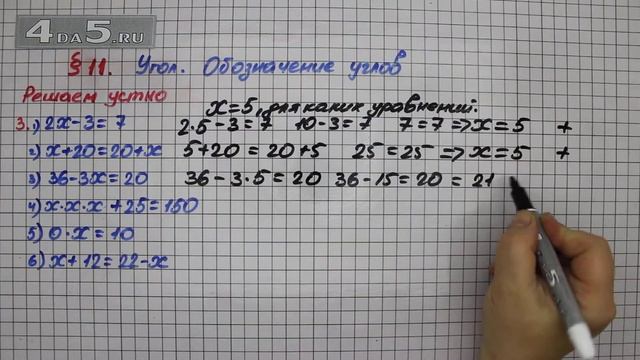 4DA5.RU
§ 11. Угол. Обозначение углов
Решаем устно
x=5, для каких уравнений:
3. 1) 2x-3=7 2·5-3=7 10-3=7 7=7=>x=5 +
2) x+20=20+x 5+20=20+5 25=25=>x=5 +
3) 36-3x=20 36-3·5=20 36-15=20 = 21
4) x·x·x+25=150
5) 0·x=10
6) x+12=22-x